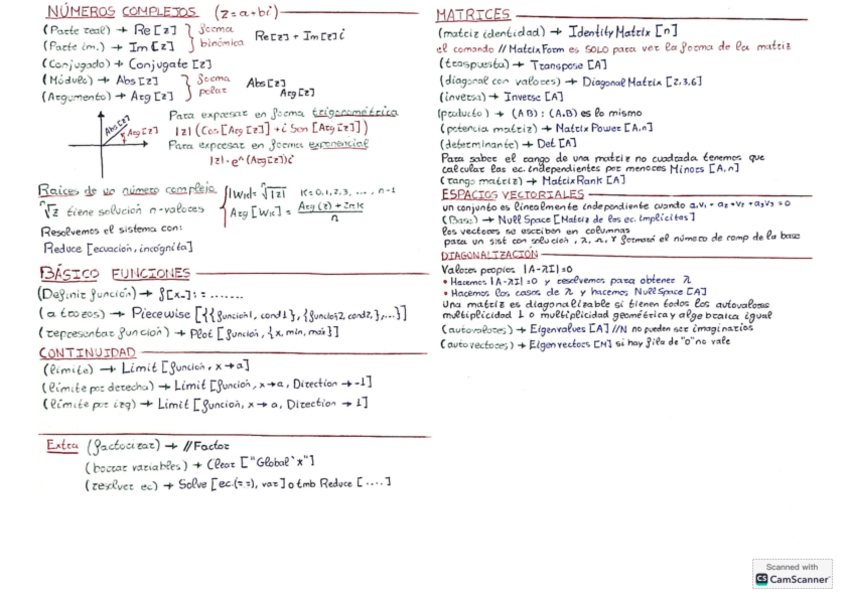 NÚMEROS COMPLEJOS (z=a+bi)
(Parte real) → Re[z] } forma binómica
(Parte im.) → Im[z]
Re[z] + Im[z]i
(Conjugado) → Conjugate [z]
(Módulo) → Abs[z] } forma polar
(Argumento) → Arg[z]
Abs[z]
Arg[z]
Abs[z]
Arg[z]
Para expresar en forma trigonométrica
|z| (Cos[Arg[z]] + i Sen [Arg[z]])
Para expresar en forma exponencial
|z|·e^(Arg[z])i
Raíces de un número complejo
ⁿ√z tiene solución n-valores
|Wk| = ⁿ√|z| K=0,1,2,3, ..., n-1
Arg [Wk] = (Arg(z) + 2πk)/n
Resolvemos el sistema con:
Reduce [ecuación, incógnita]
BÁSICO FUNCIONES
(Definir función) → f[x_]:= .......
(a trozos) → Piecewise [{{función1, cond1}, {función2, cond2}, ...}]
(representar función) → Plot [función, {x, min, max}]
CONTINUIDAD
(límite) → Limit [función, x→a]
(límite por derecha) → Limit [función, x→a, Direction → -1]
(límite por izq) → Limit [función, x→a, Direction → 1]
Extra (factorizar) → //Factor
(borrar variables) → Clear ["Global`x"]
(resolver ec) → Solve [ec.(==), var] o tmb Reduce [....]
MATRICES
(matriz identidad) → IdentityMatrix [n]
el comando //MatrixForm es SOLO para ver la forma de la matriz
(traspuesta) → Transpose [A]
(diagonal con valores) → DiagonalMatrix [2,3,6]
(inversa) → Inverse [A]
(producto) → (AB) : (A.B) es lo mismo
(potencia matriz) → MatrixPower [A,n]
(determinante) → Det [A]
Para saber el rango de una matriz no cuadrada tenemos que
calcular las ec. independientes por menores Minors [A,n]
(rango matriz) → MatrixRank [A]
ESPACIOS VECTORIALES
un conjunto es linealmente independiente cuando a₁V₁ + a₂ + V₂ + a₃V₃ = 0
(Base) → NullSpace [Matriz de las ec. implícitas]
los vectores se escriben en columnas
para un sist con solución, formará el número de comp de la base
DIAGONALIZACIÓN
Valores propios |A-λI|=0
• Hacemos |A-λI|=0 y resolvemos para obtener λ
• Hacemos los casos de λ y hacemos NullSpace [A]
Una matriz es diagonalizable si tienen todos los autovalores
multiplicidad 1 o multiplicidad geométrica y algebraica igual
(autovalores) → Eigenvalues [A]//N no pueden ser imaginarios
(autovectores) → Eigenvectors [N] si hay fila de "0" no vale
Scanned with
CS CamScanner